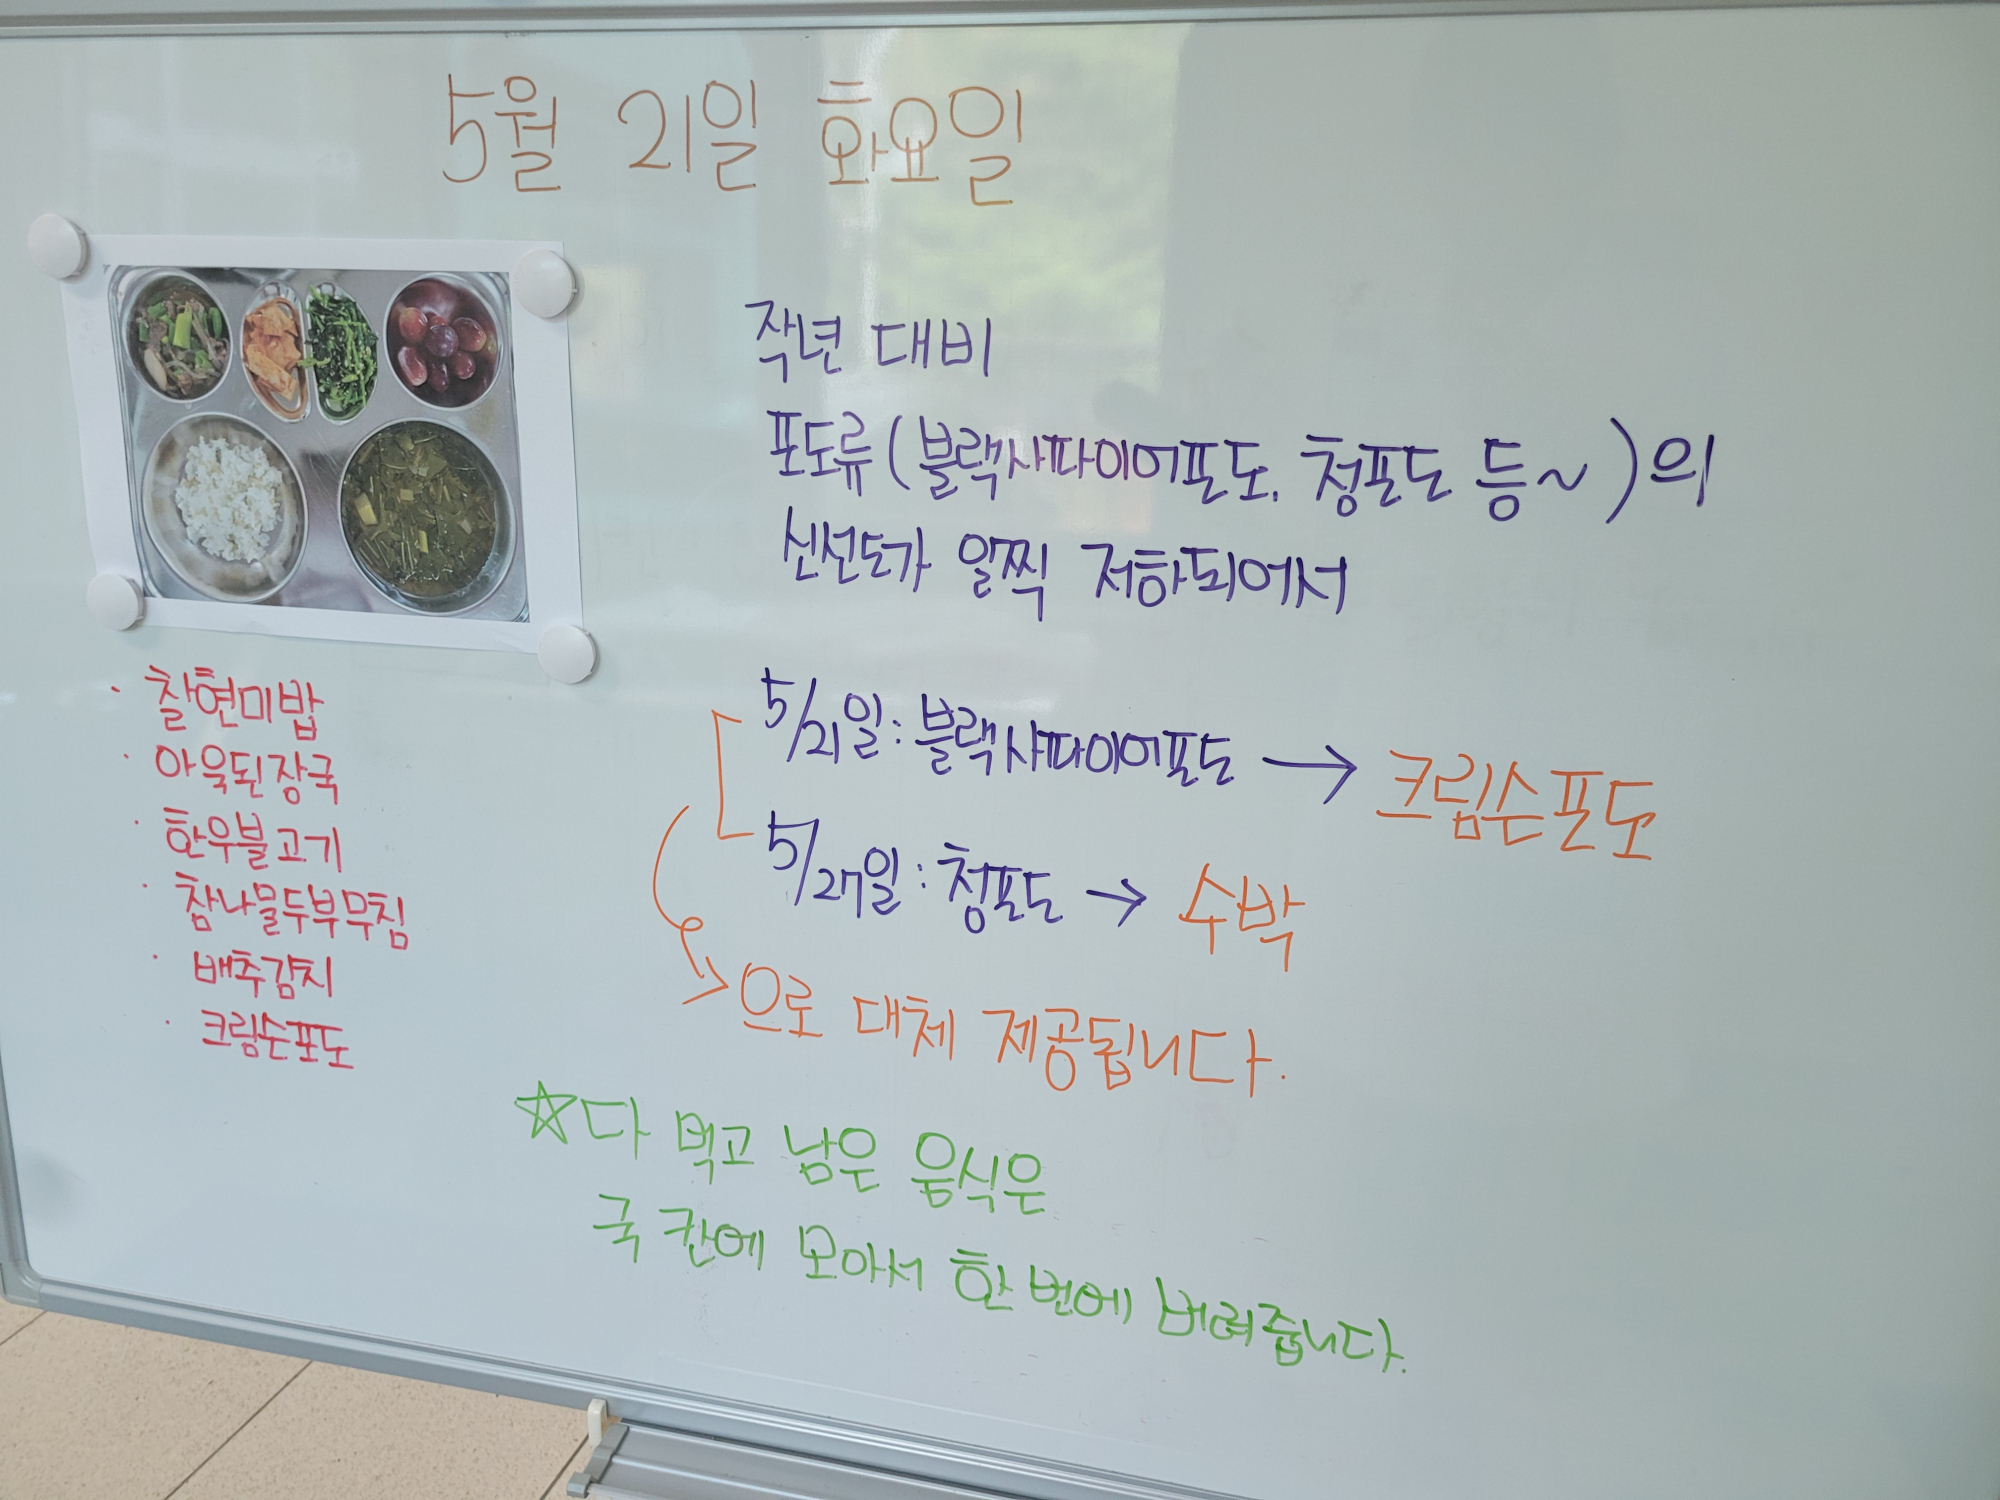 5월 21일 화요일
작년 대비
포도류(블랙사파이어포도, 청포도 등~)의
신선도가 일찍 저하되어서
5/21일: 블랙사파이어포도 → 크림슨포도
5/27일: 청포도 → 수박
으로 대체 제공됩니다.
· 찰현미밥
· 아욱된장국
· 한우불고기
· 참나물두부무침
· 배추김치
· 크림슨포도
☆다 먹고 남은 음식은
국 칸에 모아서 한 번에 버려줍니다.